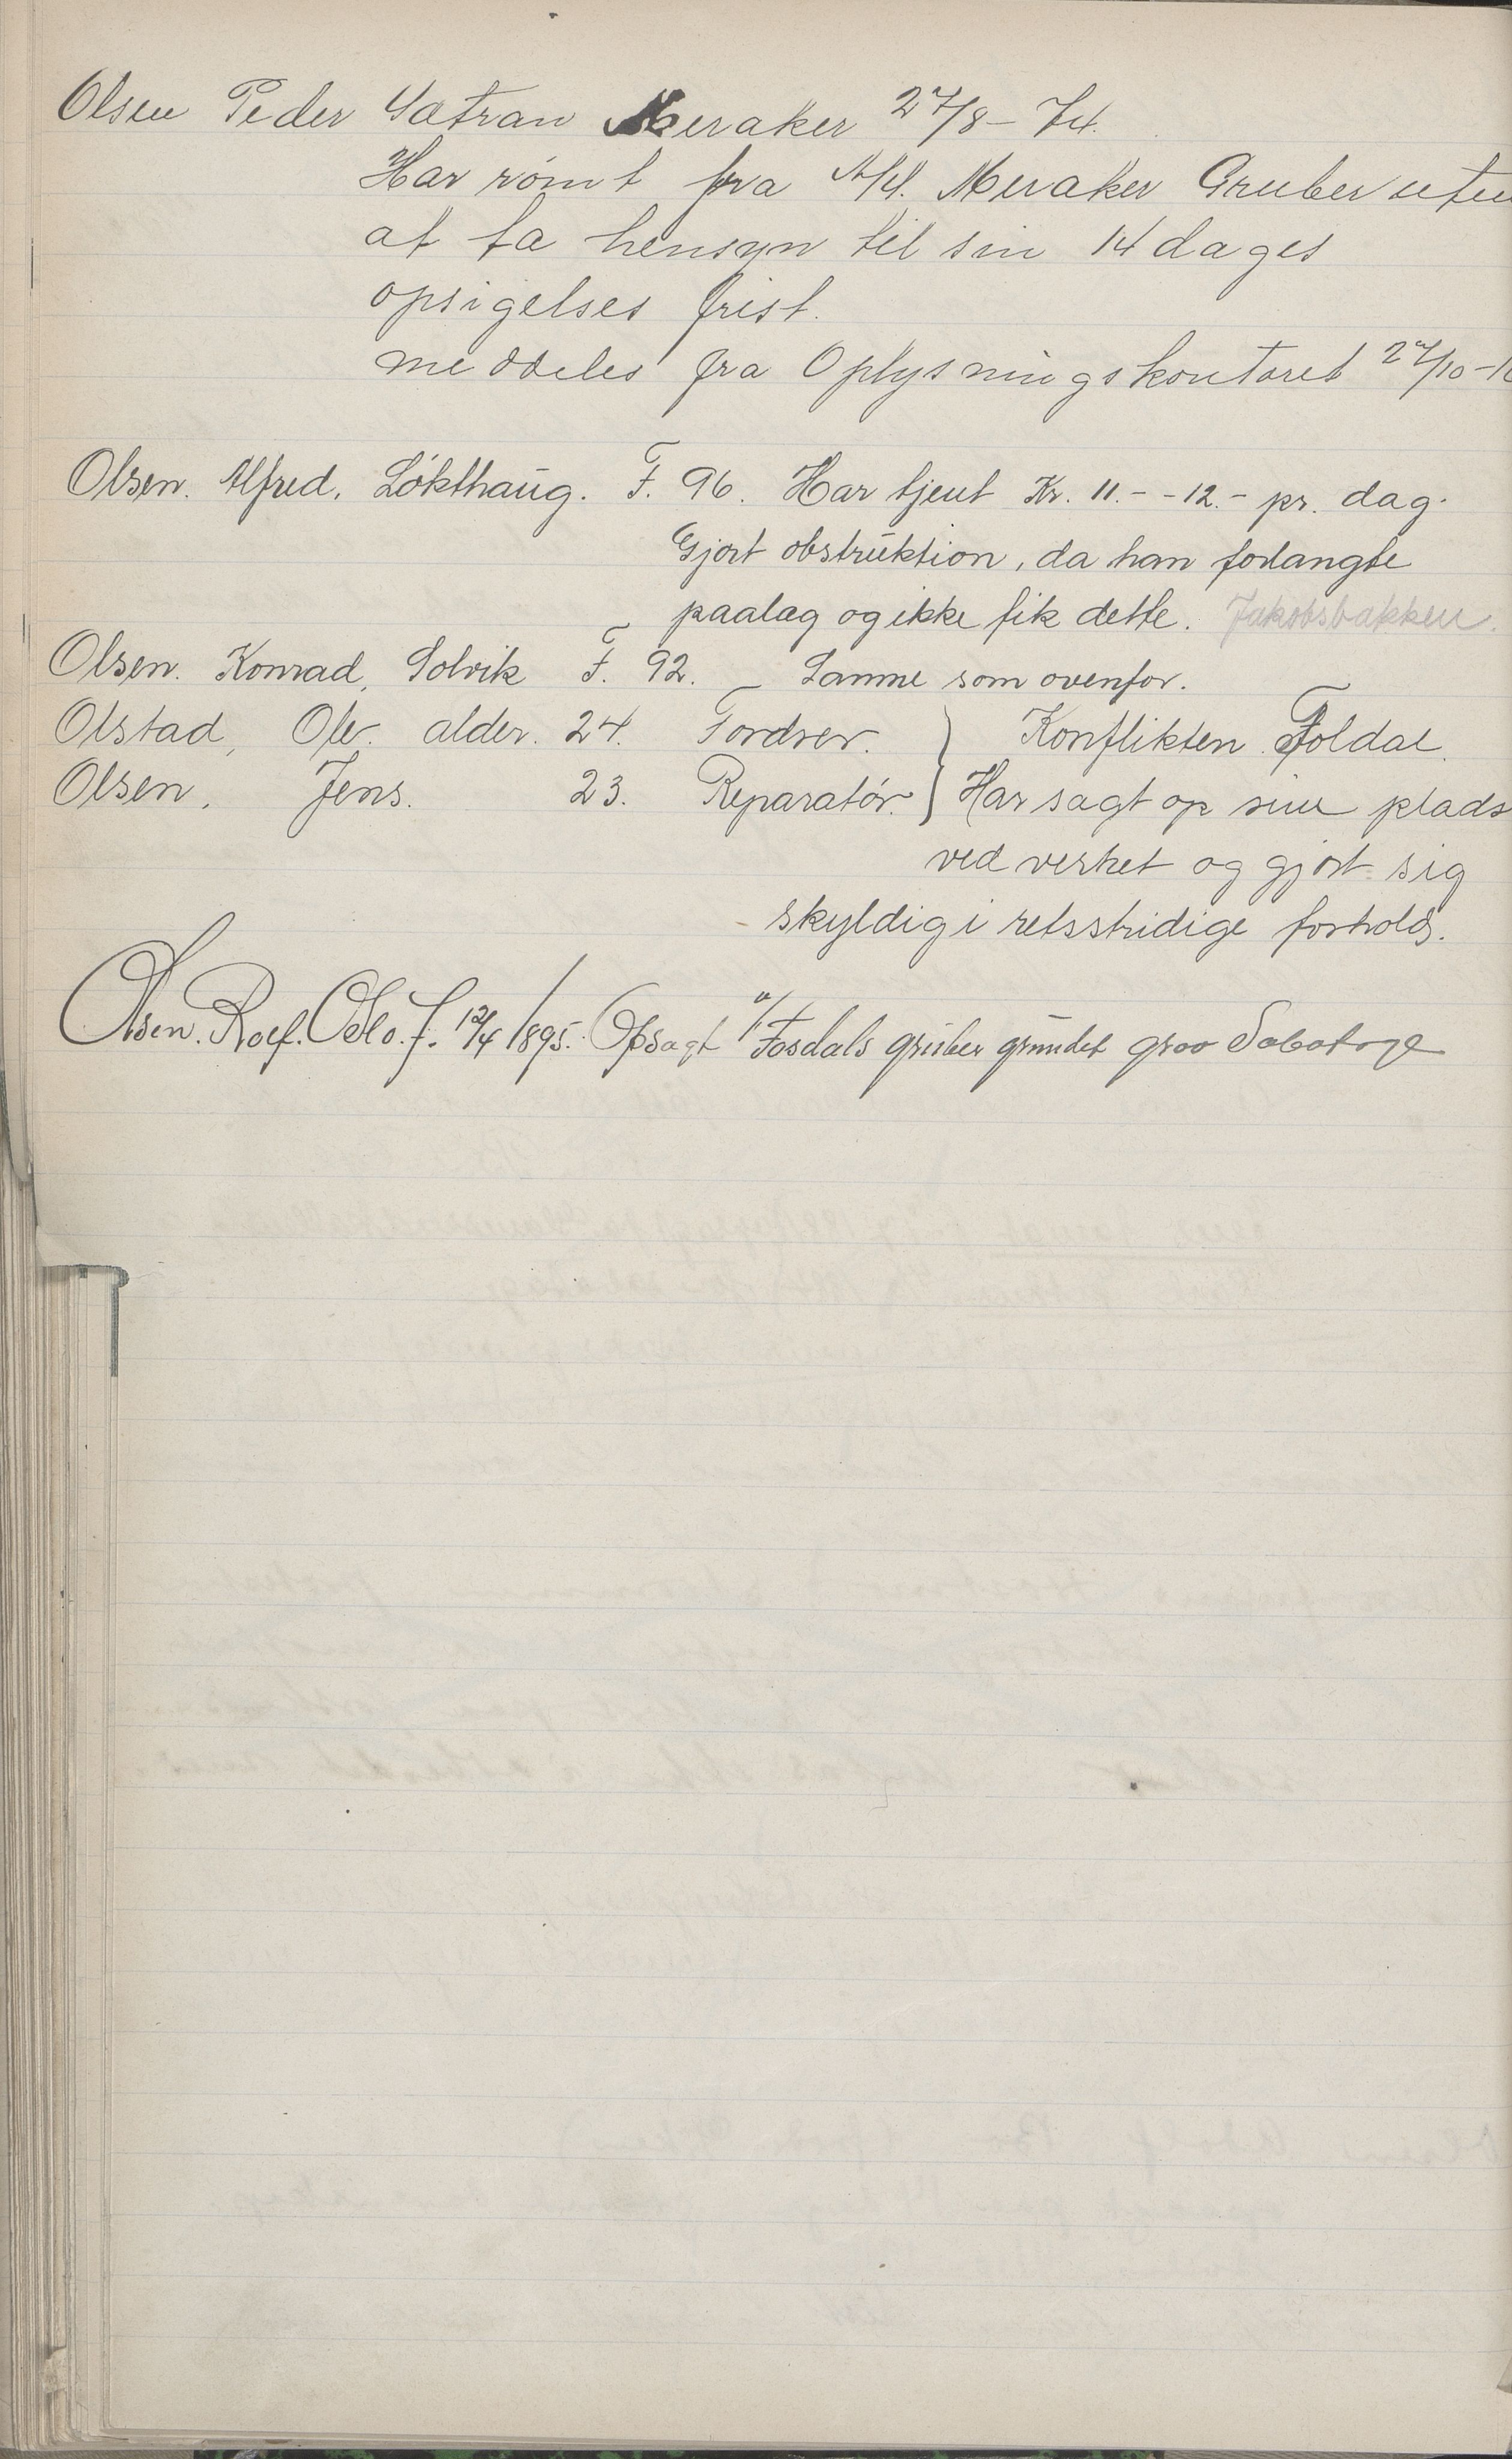 Olsen Peder Sætran Meraker 27/8-74.
Har rømt fra A/S. Meraker Gruber uten
at ta hensyn til sin 14 dages
opsigelses frist.
meddeles fra Oplysningskontoret 27/10-
Olsen. Alfred, Løkthaug. F. 96. Har tjent Kr. 11.- -12.- pr. dag.
Gjort obstruktion, da han forlangte
paalæg og ikke fik dette. Jakobsbakken.
Olsen. Konrad, Solvik F. 92. – Samme som ovenfor.
Olstad, Ole. alder. 24. Tordrer. } Konflikten Foldal.
Olsen, Jens. 23. Reparatør. } Har sagt op sine plads
ved verket og gjort sig
skyldig i retsstridige forhold.
Olsen. Rolf. Oslo. f. 12/4 1895. Opsagt v/ Fosdals gruber grundet grov Sabotage